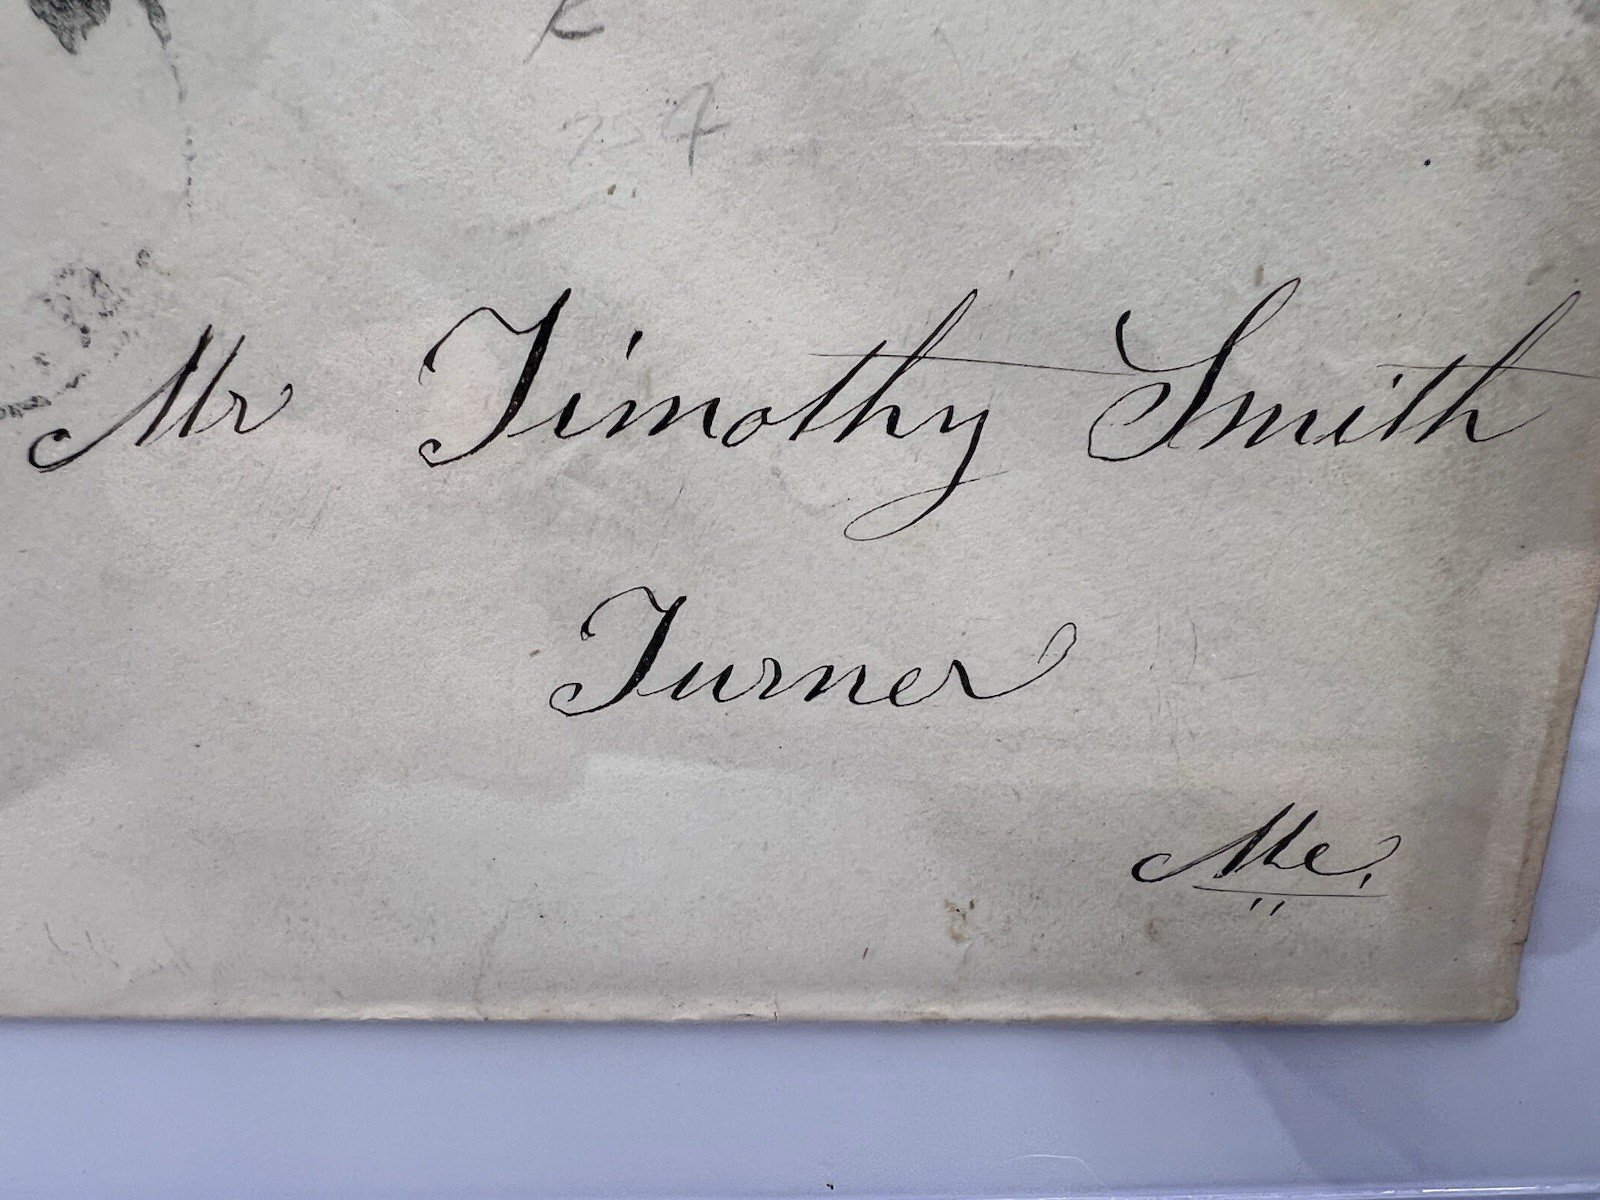 Mr Timothy Smith
Turner
Me.